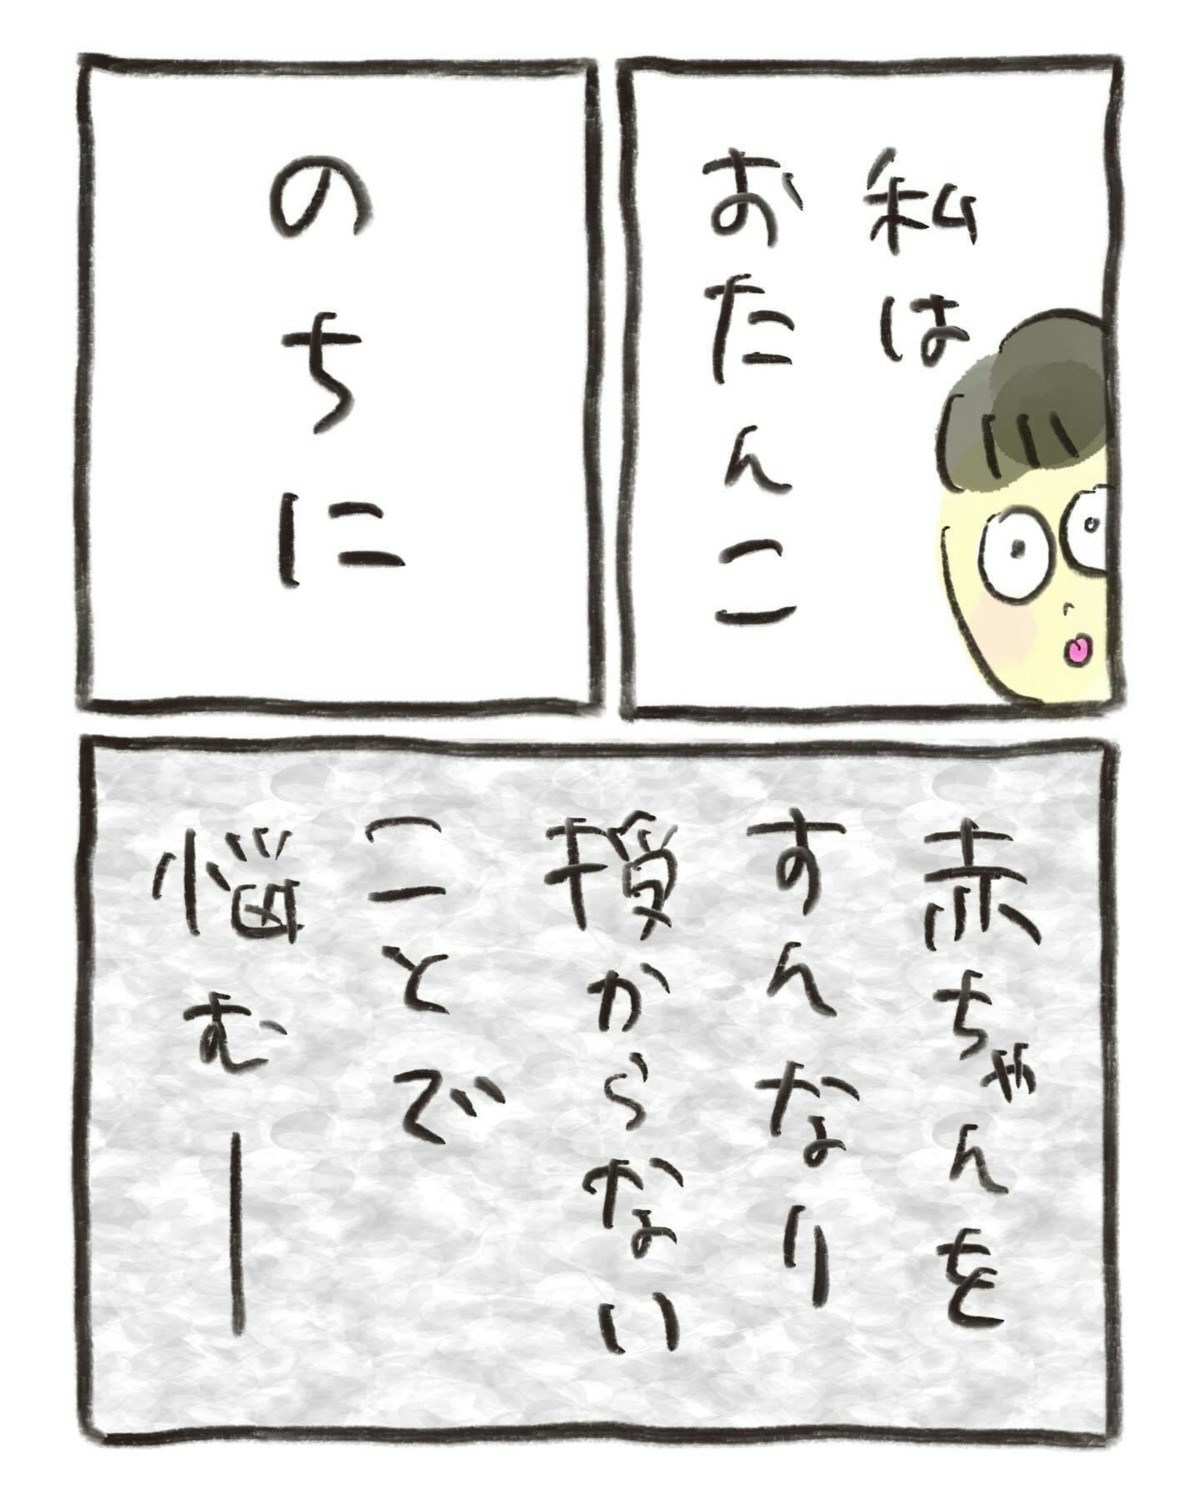 私は
おたんこ
のちに
赤ちゃんを
すんなり
授からない
ことで
悩むー